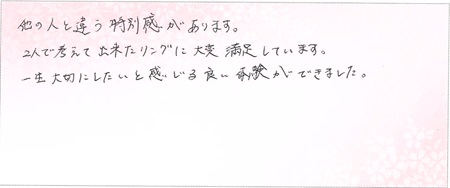 他の人と違う特別感があります。
2人で考えて出来たリングに大変満足しています。
一生大切にしたいと感じる良い体験ができました。